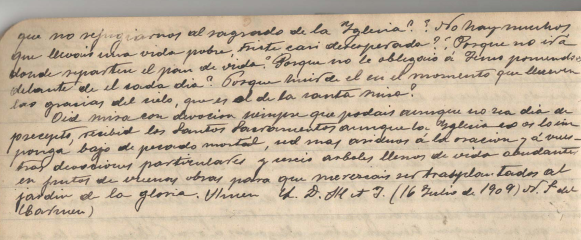 que no refugiarnos al sagrado de la Yglesia?? No hay muchos
que llevais una vida pobre, triste casi desesperada?? Porque no ira
donde reparten el pan de vida? Porque no le obligais á Jesus poniendose
delante de el cada dia? Porque huir de el en el momento que llueven
las gracias del cielo, que es el de la santa misa?
Oid misa con devocion siempre que podais aunque no sea dia de
precepto, recibid los Santos Sacramentos aunque la Yglesia no os lo im
ponga bajo de pecado mortal, sed mas asiduos á la oracion y á vues
tras devociones particulares y sereis arboles llenos de vida abundante
en frutos de buenas obras para que merezcais ser trasplantados al
jardin de la gloria. Amen L. D. M et J. (16 Julio de 1909) N. S. del
Carmen)